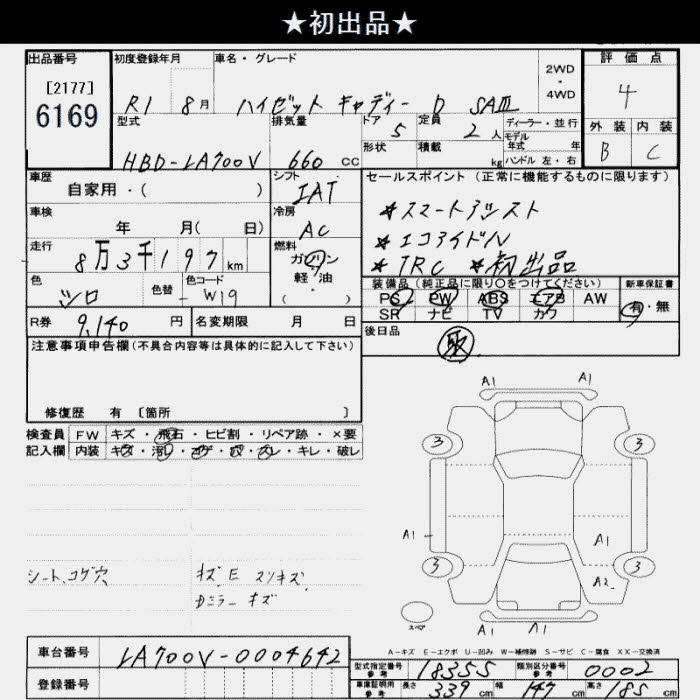 ★初出品★
出品番号 初度登録年月 車名・グレード 2WD・4WD 評価点
[2177]
6169
R1 8月 ハイゼット キャディー D SAⅢ 4
型式 排気量 ドア 5 定員 2人 ディーラー・並行 外装 内装
モデル年式 年
HBD-LA700V 660 CC 形状 積載 kg ハンドル 左・右 B C
車歴 シフト セールスポイント(正常に機能するものに限ります)
自家用・( ) IAT
車検 冷房 ★スマートアシスト
年 月( 日) AC ★エコアイドル
走行 燃料 ★TRC ★初出品
8万3千197km ガソリン
軽・油
( )
色 色替 色コード 装備品(純正品に限り○をつけてください) 新車保証書
シロ - W19 PS PW ABS エアB AW 有・無
SR ナビ TV カワ
R券 9,140円 名変期限 月 日 後日品
取
注意事項申告欄(不具合内容等は具体的に記入して下さい)
修復歴 有 〔箇所 〕
検査員 FW キズ・飛石・ヒビ割・リペア跡・×要
記入欄 内装 キズ・汚レ・コゲ・穴・スレ・キレ・破レ
A1 A1
3 3
A1 A1
3 3
A2
スペア
A1 A1
シート、コゲ穴 キズ、E スリキズ
ドミラー キズ
A-キズ E-エクボ U-凹み W-補修跡 S-サビ C-腐食 XX-交換済
車台番号 LA700V-0004642
登録番号
型式指定番号 参考 18355 類別区分番号 参考 0002
車庫証明用 参考 長さ 339cm 幅 147cm 高さ 185cm